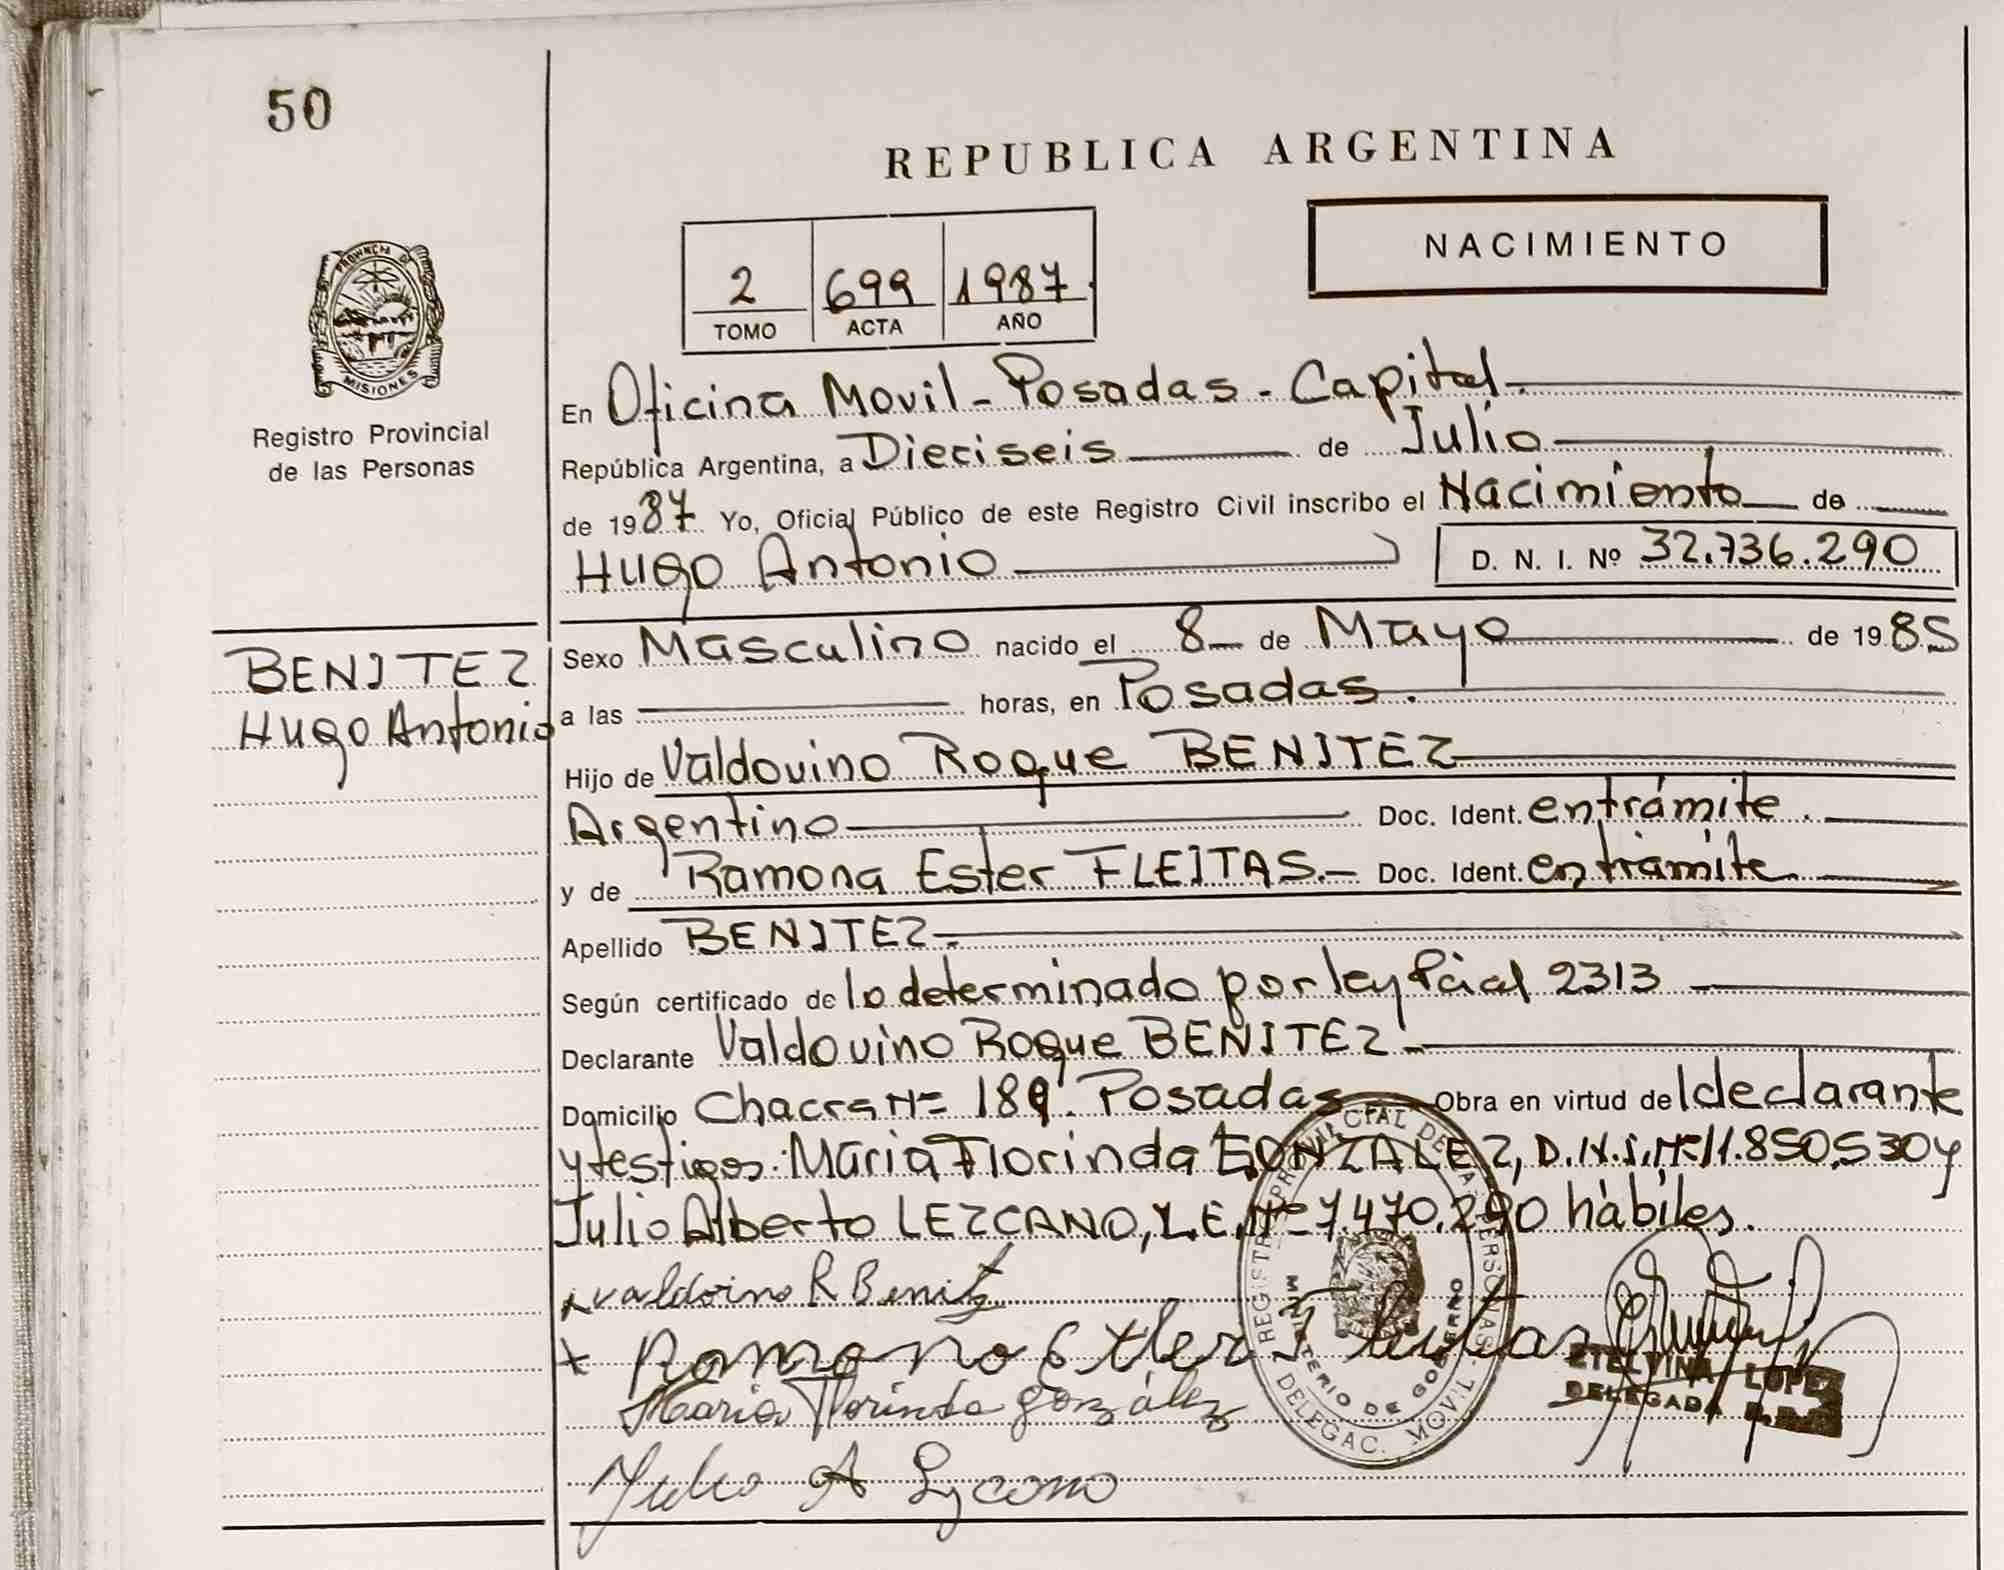 50
REPUBLICA ARGENTINA
NACIMIENTO
2 699 1987
TOMO ACTA AÑO
PROVINCIA DE MISIONES
Registro Provincial
de las Personas
En Oficina Movil - Posadas - Capital.
República Argentina, a Dieciseis de Julio
de 1987 Yo, Oficial Público de este Registro Civil inscribo el Nacimiento de
Hugo Antonio D. N. I. Nº 32.736.290
BENITEZ
Hugo Antonio
Sexo Masculino nacido el 8 de Mayo de 1985
a las horas, en Posadas.
Hijo de Valdovino Roque BENITEZ
Argentino Doc. Ident. entrámite.
y de Ramona Ester FLEITAS.- Doc. Ident. entrámite.
Apellido BENITEZ.
Según certificado de lo determinado por ley Pcial 2313
Declarante Valdovino Roque BENITEZ.
Domicilio Chacra Nº 189. Posadas Obra en virtud de l declarante
y testigos: Maria Florinda GONZALEZ, D.N.I. Nº 11.850.530 y
Julio Alberto LEZCANO, L.E. Nº 7.470.290 hábiles.
x valdovino R Benitez
x Ramona Ester
Maria Florinda González
Julio A Lezcano
REGISTRO PROVINCIAL DE LAS PERSONAS
MINISTERIO DE GOBIERNO
DELEGAC. MOVIL
ETELVINA LOPEZ
DELEGADA